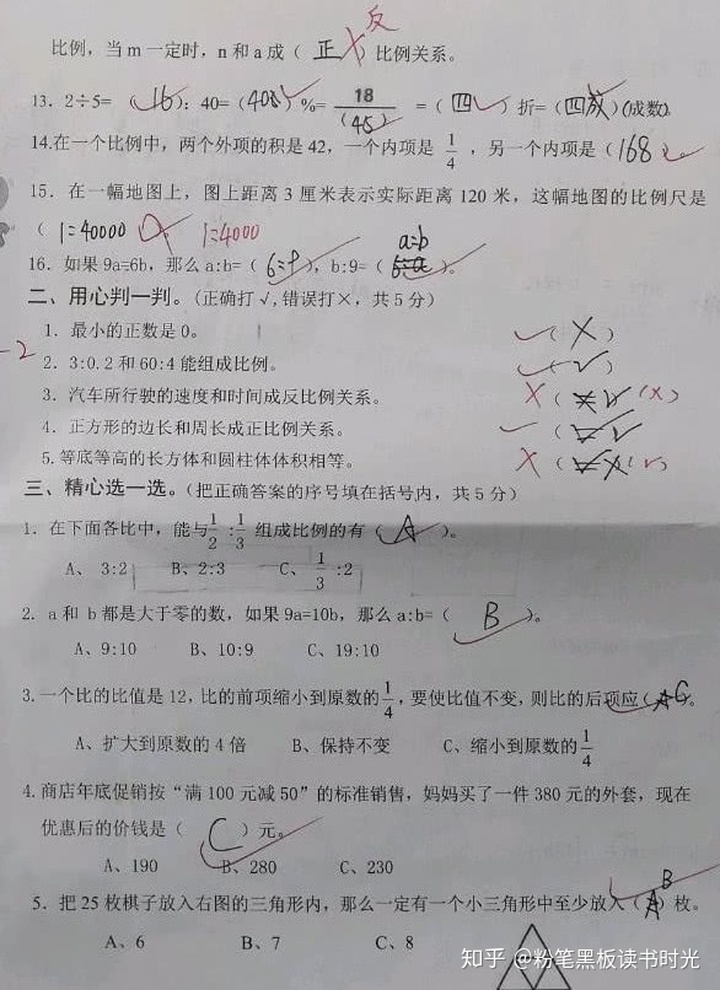 反
比例，当m一定时，n和a成（ 正 ）比例关系。
13. 2÷5=（ 16 ）：40=（40%）%= 18/(45) =（四）折=（四成）(成数)。
14.在一个比例中，两个外项的积是42，一个内项是 1/4 ，另一个内项是（168）。
15. 在一幅地图上，图上距离3厘米表示实际距离120米，这幅地图的比例尺是
（ 1:40000 ）。 1:4000
a:b
16. 如果9a=6b，那么a:b=（ 6:9 ），b:9=（ ）。
二、用心判一判。（正确打√,错误打×，共5分）
1. 最小的正数是0。 （ × ）
-2
2. 3:0.2和60:4能组成比例。 （ √ ）
3. 汽车所行驶的速度和时间成反比例关系。 × （ √ ） (×)
4. 正方形的边长和周长成正比例关系。 （ √ ）
5.等底等高的长方体和圆柱体体积相等。 × （ × ） √)
三、精心选一选。（把正确答案的序号填在括号内，共5分）
1. 在下面各比中，能与 1/2 : 1/3 组成比例的有（ A ）。
A、 3:2 B、2:3 C、 1/3 :2
2. a和 b都是大于零的数，如果9a=10b，那么a:b=（ B ）。
A、9:10 B、10:9 C、19:10
3.一个比的比值是12，比的前项缩小到原数的 1/4 ，要使比值不变，则比的后项应（ C ）。
A、扩大到原数的4倍 B、保持不变 C、缩小到原数的 1/4
4.商店年底促销按“满100元减50”的标准销售，妈妈买了一件380元的外套，现在
优惠后的价钱是（ C ）元。
A、190 B、280 C、230
B
5. 把25枚棋子放入右图的三角形内，那么一定有一个小三角形中至少放入（ A ）枚。
A、6 B、7 C、8
知乎 @粉笔黑板读书时光